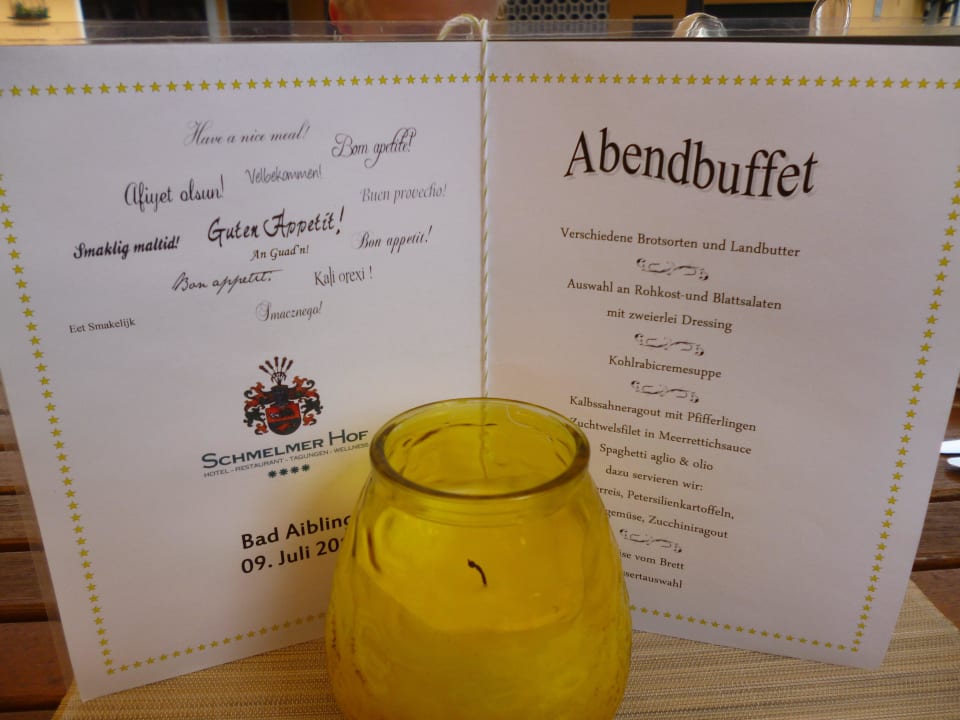 Have a nice meal!
Bom apetite!
Velbekommen!
Afiyet olsun!
Buen provecho!
Guten Appetit!
Smaklig maltid!
An Guad'n!
Bon appetit!
Bon appetit!
Kali orexi !
Smacznego!
Eet Smakelijk
SCHMELMER HOF
HOTEL - RESTAURANT - TAGUNGEN - WELLNESS
Bad Aibling
09. Juli
Abendbuffet
Verschiedene Brotsorten und Landbutter
Auswahl an Rohkost-und Blattsalaten
mit zweierlei Dressing
Kohlrabicremesuppe
Kalbssahneragout mit Pfifferlingen
Zuchtwelsfilet in Meerrettichsauce
Spaghetti aglio & olio
dazu servieren wir:
Petersilienkartoffeln,
Zucchiniragout
vom Brett